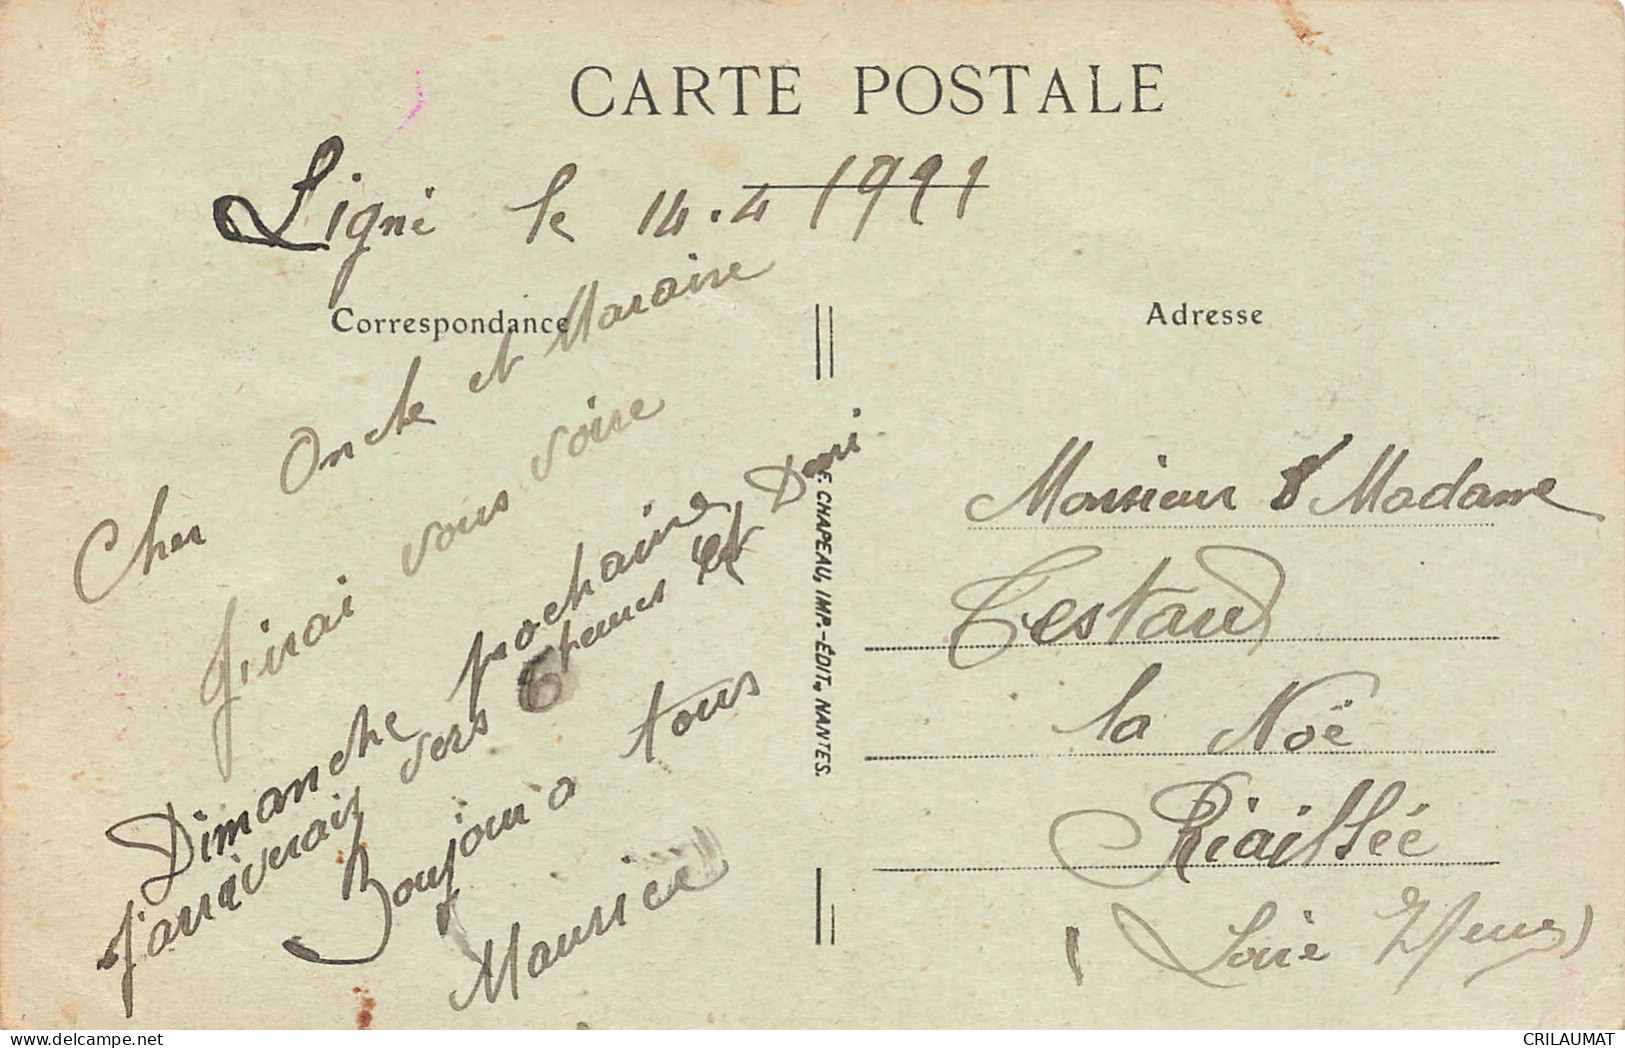 CARTE POSTALE
Ligné le 14.4 1921
Correspondance
Cher Oncle et Maraine
J'irai vous voire
Dimanche prochaine
J'arriverait vers 6 heures et Demi
Bonjour a tous
Maurice
F. CHAPEAU, IMP.-ÉDIT., NANTES.
Adresse
Monsieur & Madame
Testaud
la Noë
Riaillée
(Loire Infeure)
CRILAUMAT